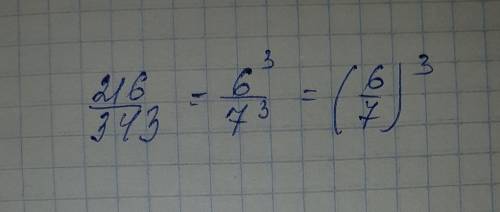 216/343 = 6³/7³ = (6/7)³